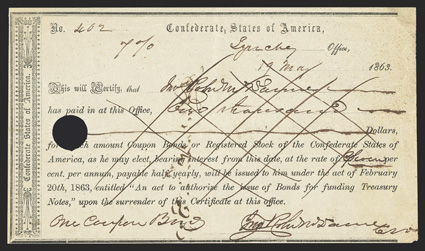 Confederate States of America.
No. 402 Confederate States of America,
7% Lynchbg Office,
19 May 1863.
This will Certify, that
has paid in at this Office, thousand
Dollars,
for which amount Coupon Bonds or Registered Stock of the Confederate States of
America, as he may elect, bearing interest from this date, at the rate of Seven per
cent. per annum, payable half yearly, will be issued to him under the act of February
20th, 1863, entitled "An act to authorize the issue of Bonds for funding Treasury
Notes," upon the surrender of this Certificate at this office.
One Coupon Bond